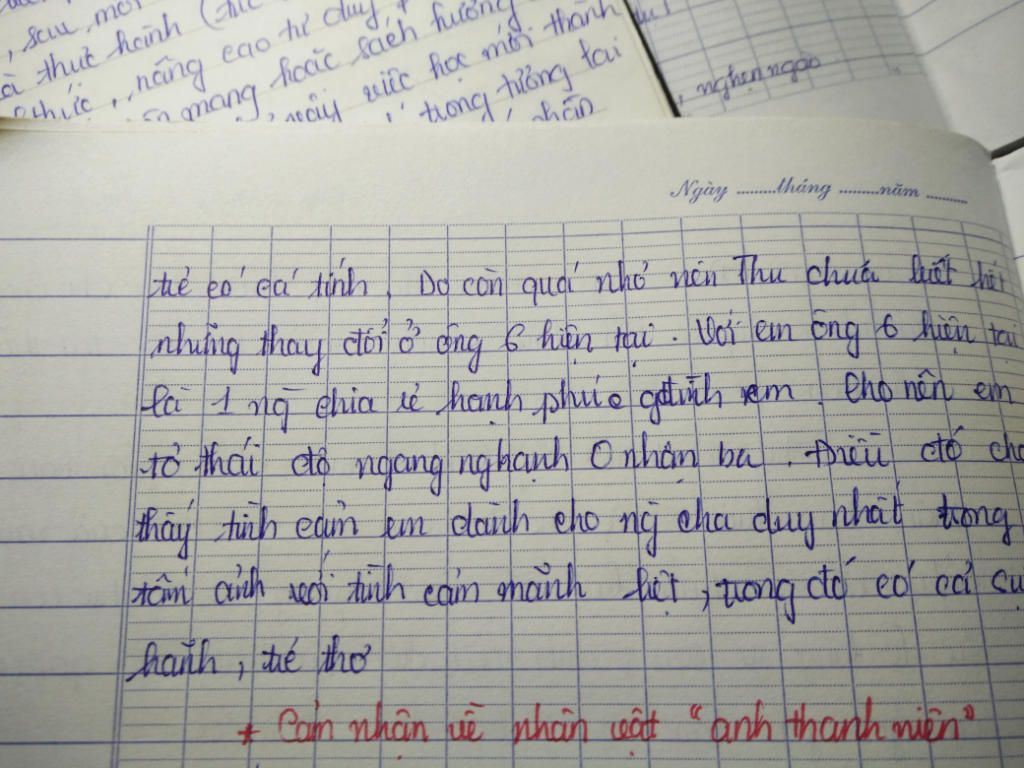 , sau, mỗi
à thực hành
thức, nâng cao tư duy,
mạng hoặc sách hướng
, vậy việc học mới thành
trong tương lai
nghẹn ngào
Ngày .........tháng .........năm .........
trẻ có cá tính. Do còn quá nhỏ nên Thu chưa biết hết
những thay đổi ở ông 6 hiện tại. Với em ông 6 hiện tại
là 1 ng chia rẽ hạnh phúc gđình em. Cho nên em
tỏ thái độ ngang nghạnh 0 nhận ba. Điều đó cho
thấy tình cảm em dành cho ng cha duy nhất trong
tấm ảnh với tình cảm mãnh liệt, trong đó có cả sự
hãnh, trẻ thơ
* Cảm nhận về nhân vật "anh thanh niên"